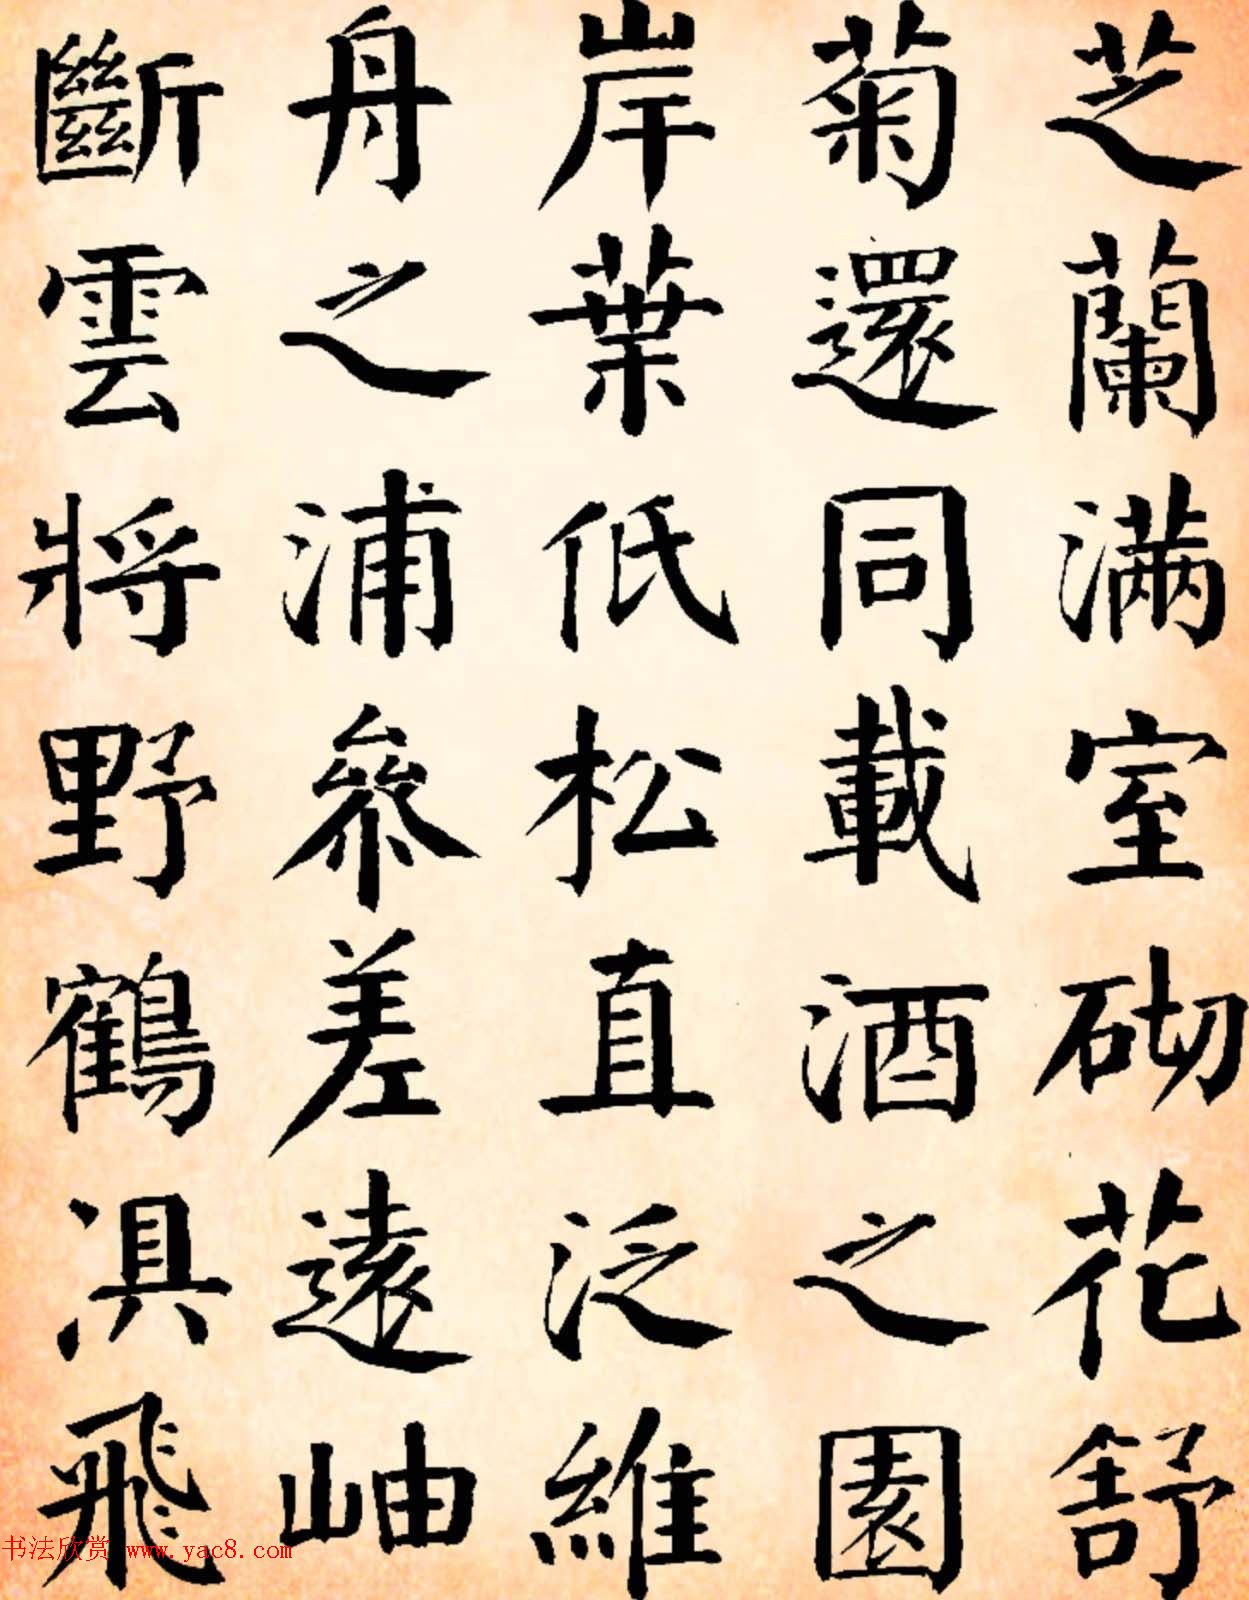 芝蘭滿室砌花舒
菊還同載酒之園
岸葉低松直泛維
舟之浦參差遠岫
斷雲將野鶴俱飛
书法欣赏 www.yac8.com